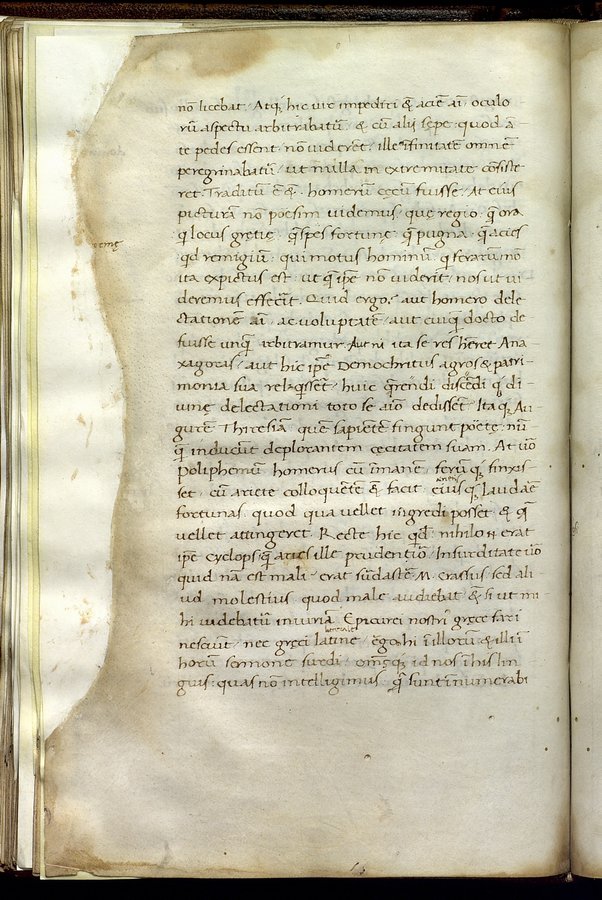 nō licebat. Atq; hic vir impediri & aciē aī oculo
rū aspectu arbitrabatū. & cū alii sepe quod ā
te pedes essent nō viderēt. ille īfinitatē omnē
peregrinabatū. ut nulla in extremitate consiste
ret. Traditū ē & homerum cęcū fuisse. At eius
picturā nō poesim videmus. quę regio. q̄ ora
q̄ locus gretię. q̄ spes fortunę. q̄ pugna. q̄ acies
qd remigiū. qui motus hominū. q̄ ferarū nō
ita expictus est. ut q̄ ipē nō viderit. nos ut vi
deremus effecerit. Quid ergo. aut homero dele
ctationē aī. ac voluptatē. aut cuiq̄ docto de
fuisse unq̄ arbitramur. Aut ni ita se res hēret Ana
xagoras. aut hic ipē Demochritus agros & patri
monia sua relīqssēt. huic q̄rendi discēdi q̄ di
uinę delectationi toto se aīo dedissēt. Itaq; Au
gurē Thiresiā. quē sapiētē fingunt poete. nū
q̄ inducūt deplorantem cęcitatem suam. At vō
Poliphemū homerus cū īmanē ferū q; finxis
set. cū ariete colloquētē & facit eius q; laudāe
fortunas quod qua vellet ingredi posset. & q̄
vellet attingeret. Recte hic qdē. nihilo n erat
ipē cyclops q̄ aries ille prudentio. In surditate vō
quid nā est mali. erat surdastē M. crassus sed ali
ud molestius quod male audiebat. & si ut mi
hi videbatū iniuria. Epicurei nostri grece fari
nesciūt. nec gręci latine. ergo hi ī illorū & illi ī
horum sermone surdi. omēsq; id nos ī his lin
guis. quas nō intelligimus q̄ sunt īnumerabi